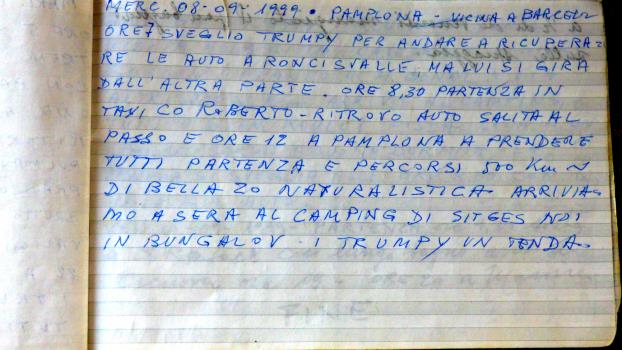 MERC. 08-09-1999. PAMPLONA - VICINA A BARCELL
ORE 7 SVEGLIO TRUMPY PER ANDARE A RICUPERA-
RE LE AUTO A RONCISVALLE, MA LUI SI GIRA
DALL'ALTRA PARTE. ORE 8,30 PARTENZA IN
TAXI CO ROBERTO - RITROVO AUTO SALITA AL
PASSO E ORE 12 A PAMPLONA A PRENDERE
TUTTI PARTENZA E PERCORSI 500 Km ~
DI BELLA ZO NATURALISTICA. ARRIVIA-
MO A SERA AL CAMPING DI SITGES NOI
IN BUNGALOV. I TRUMPY IN TENDA.
FINE